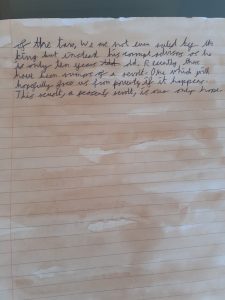 of the two, we are not even ruled by the
king but instead his corrupt advisors as he
is only ten years old. Recently, there
have been rumors of a revolt. One which will
hopefully free us from poverty if it happens.
This revolt, a peasants revolt, is our only hope.